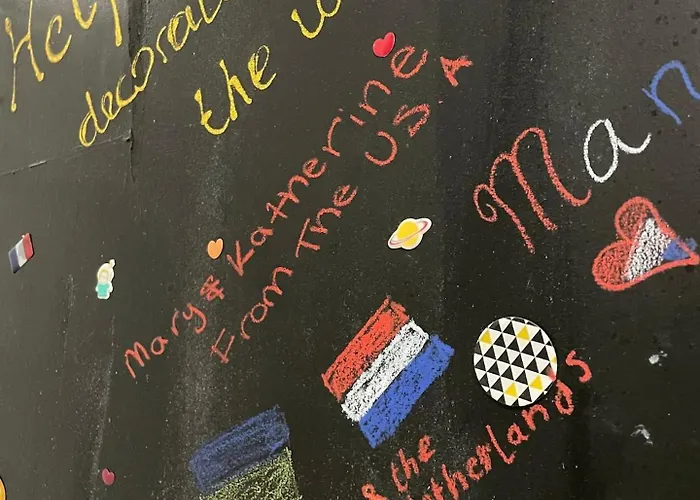 Help
decorat
the w
Mary & Katherine
From The USA
Man
& the
etherlands